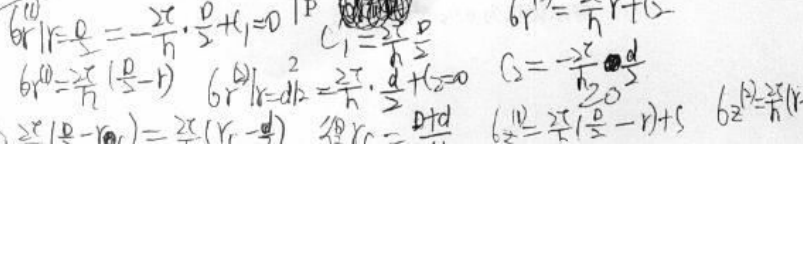 σr⁽¹⁾|r=D/2 = -2τ/h · D/2 + C₁ = 0   C₁ = 2τ/h D/2   σr⁽²⁾ = 2τ/h r + C₂
σr⁽¹⁾ = 2τ/h (D/2 - r)   σr⁽²⁾|r=d/2 = 2τ/h · d/2 + C₂ = 0   C₂ = -2τ/h d/2
2τ/h (D/2 - rc) = 2τ/h (rc - d/2)   得 rc = D+d/   σz⁽¹⁾ = 2τ/h (D/2 - r) + S   σz⁽²⁾ = 2τ/h (r